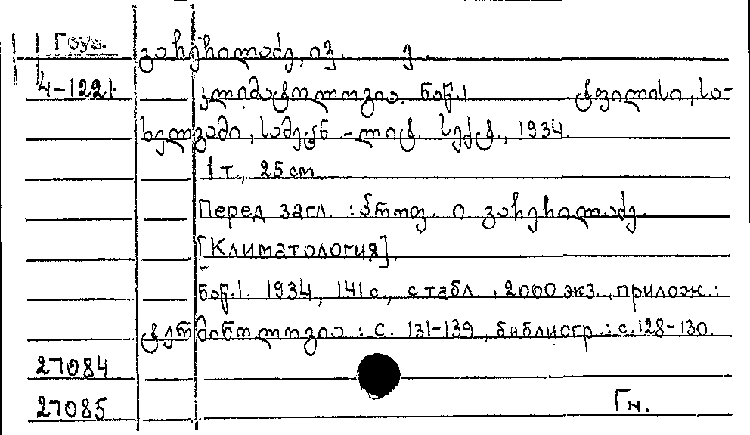 Груз.
4-1221
კლიმატოლოგია. ნაწ. 1 ტფილისი, სა-
ხელგამი, სამეცნ.-ლიტ. სექტ., 1934.
1 т., 25 cm
Перед загл.: პროფ. ი.
[Климатология].
ნაწ. 1. 1934, 141 с., с табл., 2000 экз., прилож.:
ტერმინოლოგია: с. 131-139, библиогр.: с. 128-130.
27084
27085 Гн.